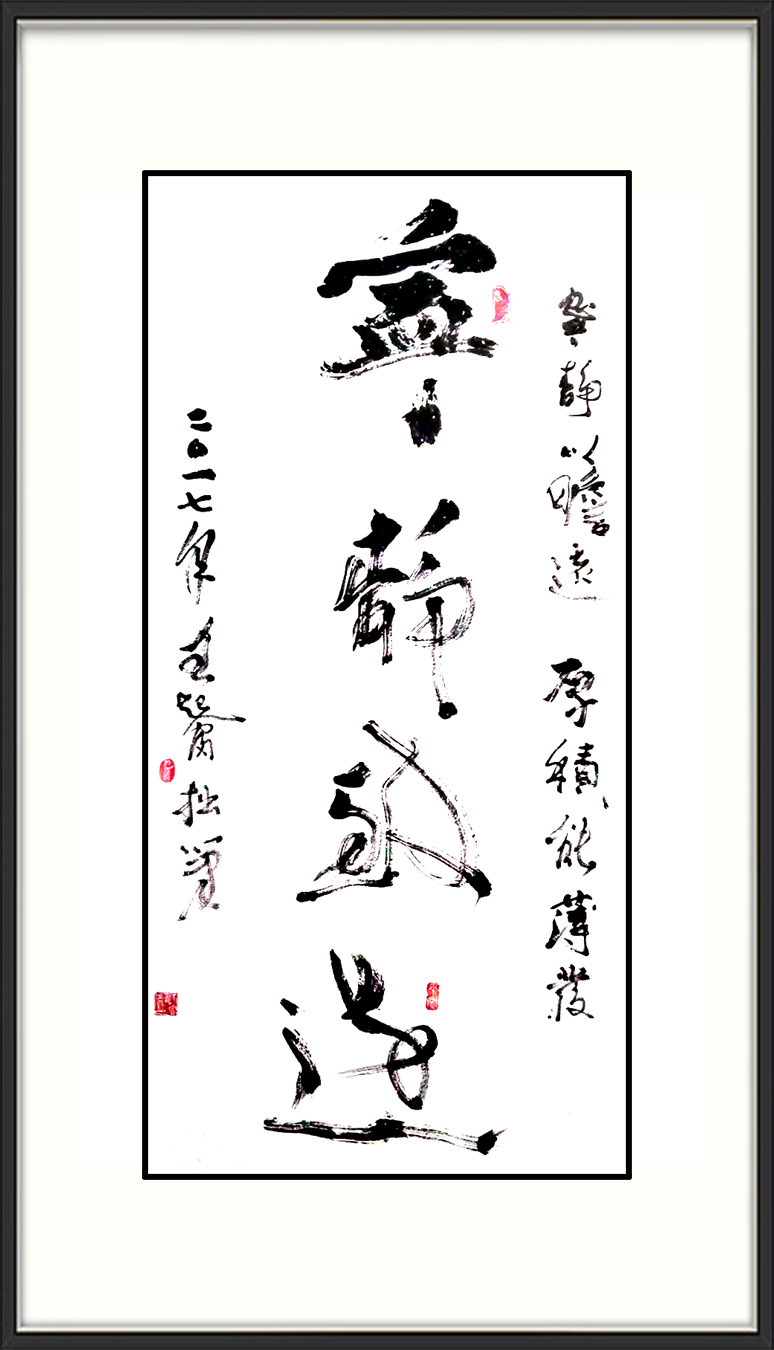 寧靜以瞻遠 厚積能薄發
寧靜致遠
二〇一七年 拙筆